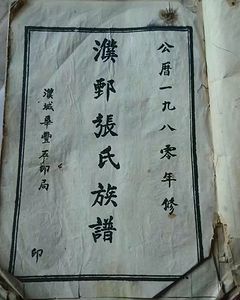 公曆一九八零年修
濮鄄張氏族譜
濮城華豐石印局
印